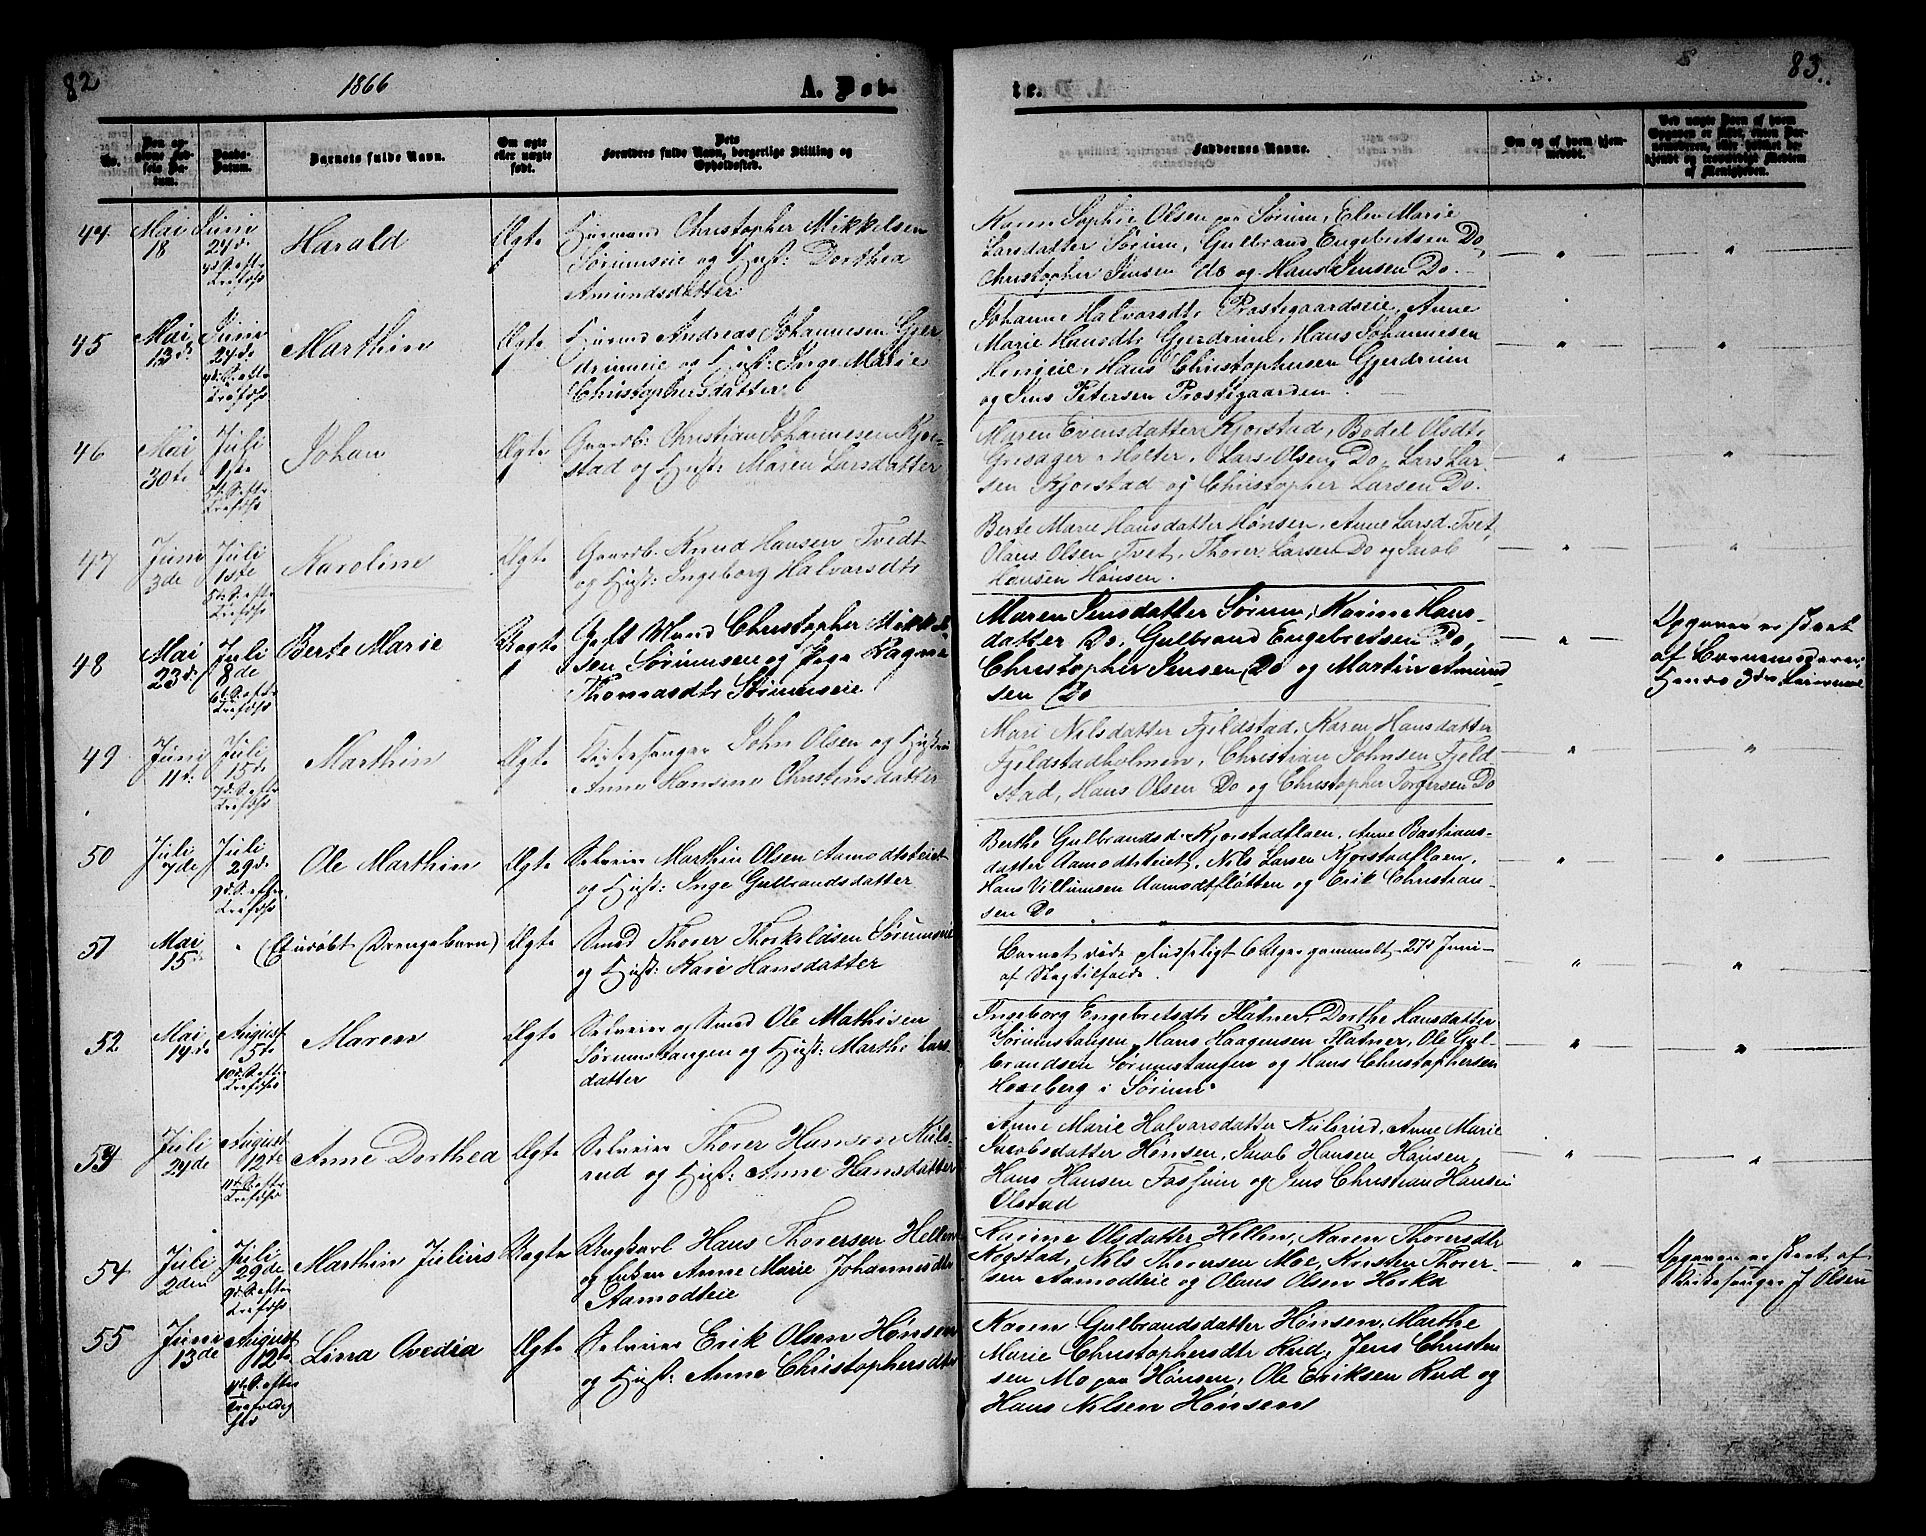 82
1866
A. Døb-
te.
83.
No.
Barnets fulde Navn.
Om ægte
eller uægte
født.
Dets
Forældres fulde Navn, borgerlige Stilling og
Opholdssted.
Faddernes Navne.
Om og af hvem hjem-
medøbt.
44
Mai
18
Juni
24de
Harald
Ægte
Huusmand Christopher Mikkelsen
Sørumseie og Hust: Dorthea
Amundsdatter
Karen Sophie Olsen paa Sørum, Elen Marie
Larsdatter Sørum, Gulbrand Engebretsen Do,
Christopher Jensen do og Hans Jensen Do.
45
Mai
13de
Juni
24de
Marthin
Ægte
Huusmd Andreas Johannesen Gjer-
drumeie og Hust: Inge Marie
Christophersdatter
Johanne Halvorsdt. Prostegaardseie, Anne
Marie Hansdt. Gjerdrum, Hans Johannesen
Hans Christophersen Gjerdrum
og Jens Petersen Prostegaarden.
46
Mai
30te
Juli
1ste
Johan
Ægte
Gaardb: Christian Johannesen Kjor-
stad og Hust: Maren Larsdatter
Maren Evensdatter Kjorstad, Bodel Olsdt.
Holter, Lars Olsen Do, Lars Lar-
sen Kjorstad og Christopher Larsen Do.
47
Juni
3de
Juli
1ste
Karoline
Ægte
Gaardb. Knud Hansen Tvedt
og Hust: Ingeborg Halvorsdt.
Berte Marie Hansdatter Hønsen, Anne Larsd. Tvet,
Olaus Olsen Tvet, Thorer Larsen Do og Jacob
Hansen Hønsen.
48
Mai
23de
Juli
8de
Berte Marie
Uægte
Gift Mand Christopher Mikkel-
sen Sørumseie og Pige Ragne
Thomasdt. Sørumseie
Maren Jensdatter Sørum, Karine Hans-
datter Do, Gulbrand Engebretsen Do,
Christopher Jensen Do og Martin Amund-
sen Do
Opgaven er skeet
af Barnemoderen,
49
Juni
11te
Juli
15de
Marthin
Ægte
Kirkesanger John Olsen og Hustru
Anne Hansine Christensdatter
Mari Nilsdatter Fjeldstad, Karen Hansdatter
Fjeldstadholmen, Christian Johnsen Fjeld-
stad, Hans Olsen Do og Christopher Torgersen Do
50
Juli
7de
Juli
29de
Ole Marthin
Ægte
Selveier Marthin Olsen Aamodteiet
og Hust: Inge Gulbrandsdatter
Berthe Gulbrandsd. Kjorstadflaen, Anne Bastians-
datter Aamodteiet, Nils Larsen Kjorstadflaen,
Hans Villumsen Aamodtfløtten og Erik Christian-
sen Do
51
Mai
15de
(Et udøbt Drengebarn)
Ægte
Smed Thorer Thorkildsen Sørumseie
og Hust: Kari Hansdatter
Barnet døde pludseligt 6 Uger gammelt 27de Juni
af Slagtilfælde.
52
Mai
14de
August
5te
Maren
Ægte
Selveier og Smed Ole Mathisen
Sørumstangen og Hust: Marthe Lars-
datter
Ingeborg Engebretsdt. Flatner, Dorthe Hansdatter
Sørumstangen, Hans Haagensen Flatner, Ole Gul-
brandsen Sørumstangen og Hans Christophersen
Høreberg i Sørum
53
Juli
24de
August
12te
Anne Dorthea
Ægte
Selveier Thorer Hansen Kuls-
rud og Hust: Anne Hansdatter
Anne Marie Halvorsdatter Kulsrud, Anne Marie
Jacobsdatter Hønsen, Jacob Hansen Hønsen,
Hans Hansen Fossum og Jens Christian Hansen
Olstad
54
Juli
2den
Juli
29de
Marthin Julius
Uægte
Ungkarl Hans Thorersen Hellen
og Enken Anne Marie Johannesdt.
Aamodteie
Karine Olsdatter Hellen, Karen Thorersdt.
Kogstad, Nils Thoresen Moe, Karsten Thorer-
sen Aamodteie og Olaus Olsen Horka
Opgaven er skeet af
Kirkesanger J Olsen
55
Juni
13de
August
12te
Lina Ovedia
Ægte
Selveier Erik Olsen Hønsen
og Hust: Anne Christophersdt.
Karen Gulbrandsdatter Hønsen, Marthe
Marie Christophersdt. Rud, Jens Christen-
sen Mo paa Hønsen, Ole Eriksen Rud og
Hans Nilsen Hønsen